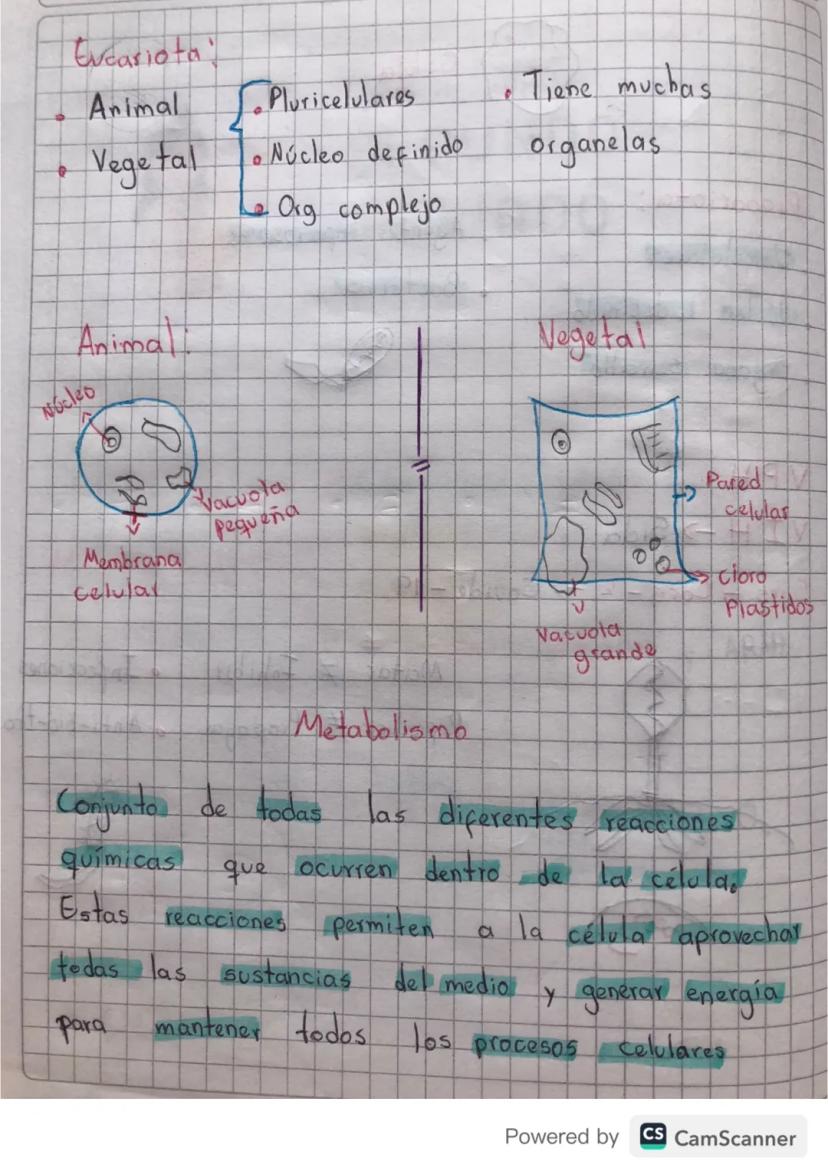 Eucariota:
• Animal
• Vegetal
• Pluricelulares
• Núcleo definido
• Org complejo
• Tiene muchas
organelas
Animal:
Núcleo
Vacuola
pequeña
Membrana
celular
Vegetal
Pared
celular
Cloro
Plastidos
Vacuola
grande
Metabolismo
Conjunto de todas las diferentes reacciones
químicas que ocurren dentro de la célula.
Estas reacciones permiten a la célula aprovechar
todas las sustancias del medio y generar energía
para mantener todos los procesos celulares
Powered by CS CamScanner